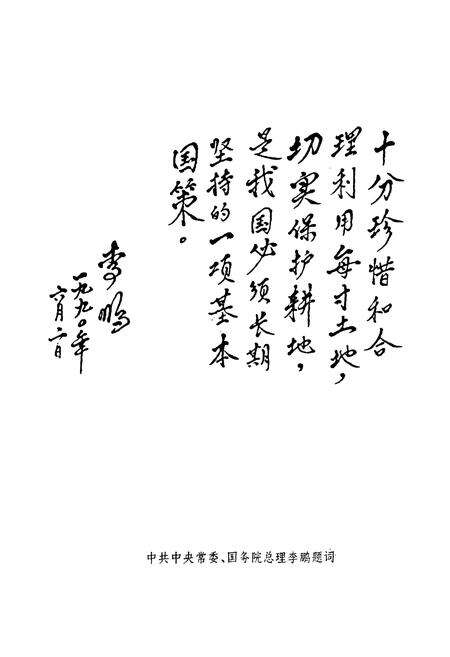 十分珍惜和合
理利用每寸土地，
切实保护耕地，
是我国必须长期
坚持的一项基本
国策。
李鹏
一九九〇年
六月二日
中共中央常委、国务院总理李鹏题词